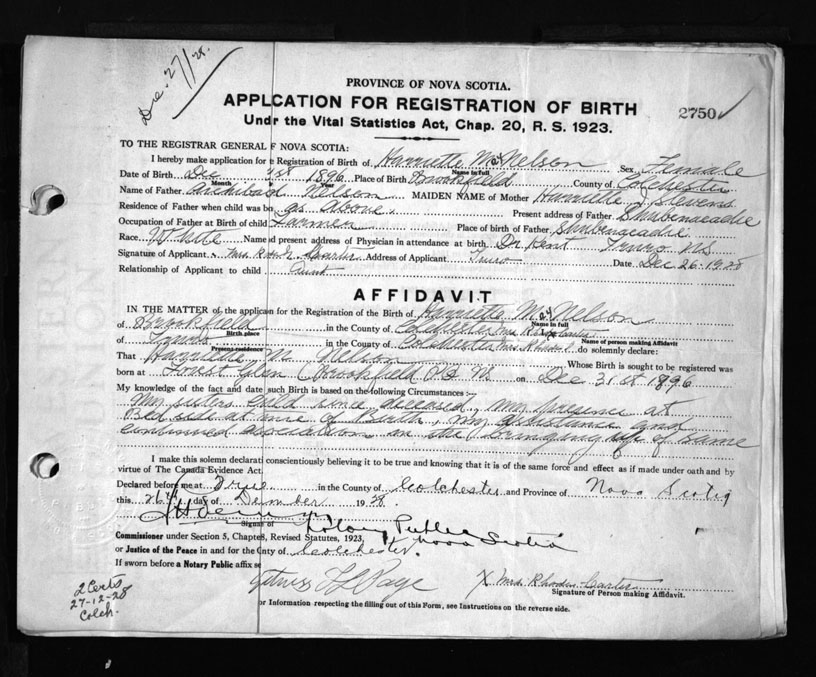 Dec. 27/28.
PROVINCE OF NOVA SCOTIA.
APPLCATION FOR REGISTRATION OF BIRTH
2750
Undr the Vital Statistics Act, Chap. 20, R. S. 1923.
TO THE REGISTRAR GENERAL F NOVA SCOTIA:
I hereby make application for e Registration of Birth of Harriette Mae Nelson Sex Female
Name in full
Date of Birth Dec 31st 1896 Place of Birth Brookfield County of Colchester
Month Year
Name of Father Archibald Nelson MAIDEN NAME of Mother Harriette Stevens
Residence of Father when child was bo as above. Present address of Father Shubenacadie
Occupation of Father at Birth of child Farmer Place of birth of Father Shubenacadie
Race White Name d present address of Physician in attendance at birth Dr Kent Truro NS
Signature of Applicant Mrs Carter Address of Applicant Truro Date Dec 26-1928
Relationship of Applicant to child Aunt
AFFIDAVIT
IN THE MATTER of the applica for the Registration of the Birth of Harriette Mae Nelson
Name in full
of Brookfield in the County of Colchester Mrs Carter
Birth place Name of person making Affidavit
of Truro in the County of Colchester Mrs Rhoda do solemnly declare:
Present residence
That Harriette M Nelson Whose Birth is sought to be registered was
born at Forest Glen (Brookfield NS on Dec 31st 1896
My knowledge of the fact and date such Birth is based on the following Circumstances:
My sisters child since deceased, my presence at
Bed side at time of Birth, my assistance and
continued association in the bringing up of same
I make this solemn declarati conscientiously believing it to be true and knowing that it is of the same force and effect as if made under oath and by
virtue of The Canada Evidence Act.
Declared before me at Truro in the County of Colchester and Province of Nova Scotia
this 26th day of December 1928.
Signatu of Notary Public
Commissioner under Section 5, Chapter 8, Revised Statutes, 1923, Nova Scotia
or Justice of the Peace in and for the Cnty of Colchester.
If sworn before a Notary Public affix se
Witness Page X Mrs Rhoda Carter
Signature of Person making Affidavit.
or Information respecting the filling out of this Form, see Instructions on the reverse side.
2 Certs
27-12-28
Colch.